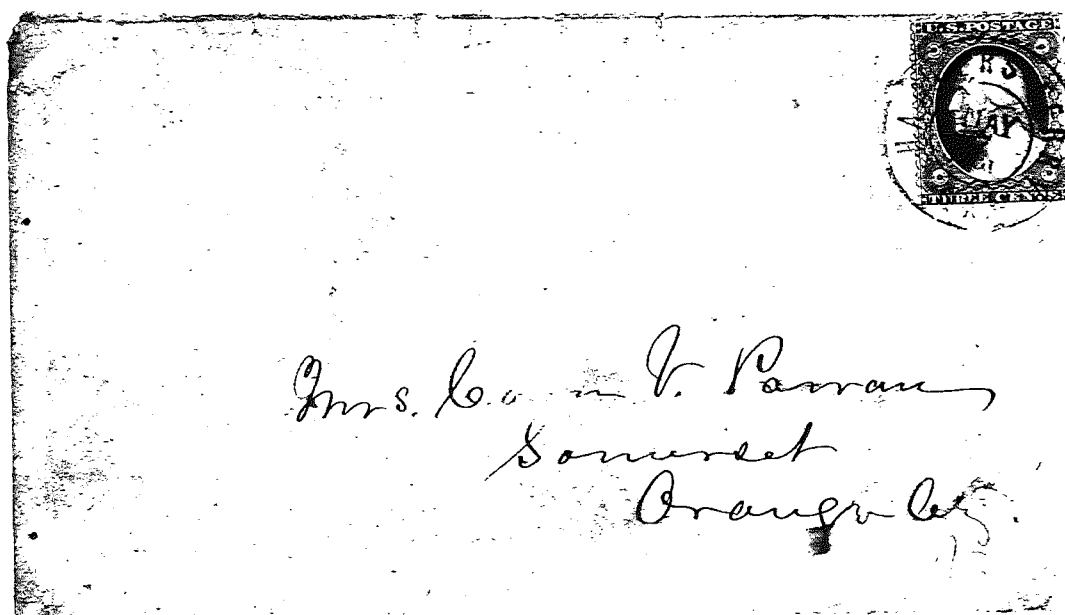 U.S. POSTAGE
MAY
THREE CENTS
Mrs. V. Parran
Somerset
Orange Cty.